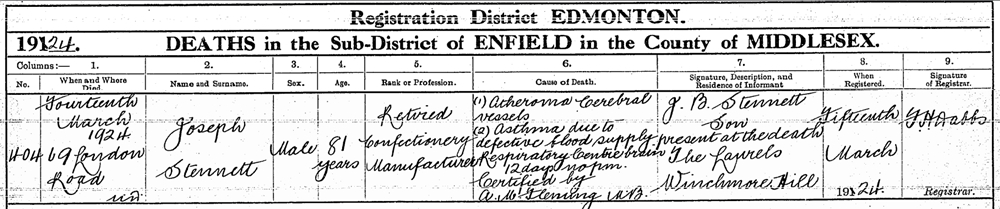 Registration District EDMONTON.
1924. DEATHS in the Sub-District of ENFIELD in the County of MIDDLESEX.
Columns:— 1. 2. 3. 4. 5. 6. 7. 8. 9.
No. When and Where Died. Name and Surname. Sex. Age. Rank or Profession. Cause of Death. Signature, Description, and Residence of Informant When Registered. Signature of Registrar.
404
Fourteenth
March
1924
69 London
Road
U.D.
Joseph
Stennett
Male
81
years
Retired
Confectionery
Manufacturer
(1) Atheroma Cerebral
vessels
(2) Asthma due to
defective blood supply
Respiratory Centre brain
12 days no p.m.
Certified by
A. McFleming M.B.
J. B. Stennett
Son
present at the death
The Laurels
Winchmore Hill
Fifteenth
March
1924
Dabbs
Registrar.